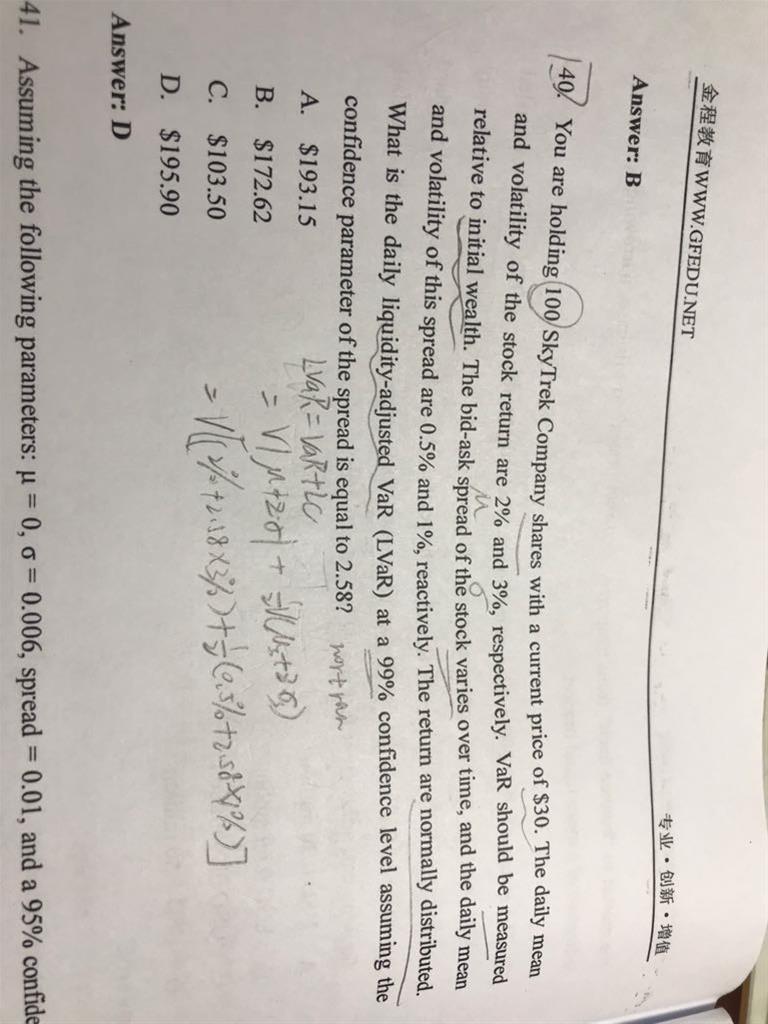 金程教育 WWW.GFEDU.NET 专业·创新·增值
Answer: B
140. You are holding 100 SkyTrek Company shares with a current price of $30. The daily mean
and volatility of the stock return are 2% and 3%, respectively. VaR should be measured
relative to initial wealth. The bid-ask spread of the stock varies over time, and the daily mean
and volatility of this spread are 0.5% and 1%, reactively. The return are normally distributed.
What is the daily liquidity-adjusted VaR (LVaR) at a 99% confidence level assuming the
confidence parameter of the spread is equal to 2.58?
A. $193.15
B. $172.62
C. $103.50
D. $195.90
μ
σ
LVaR = VaR + LC
= V|μ+zσ| + ½V(μs+zσs)
= V[(2%+2.58×3%)+½(0.5%+2.58×1%)]
Answer: D
41. Assuming the following parameters: μ = 0, σ = 0.006, spread = 0.01, and a 95% confide